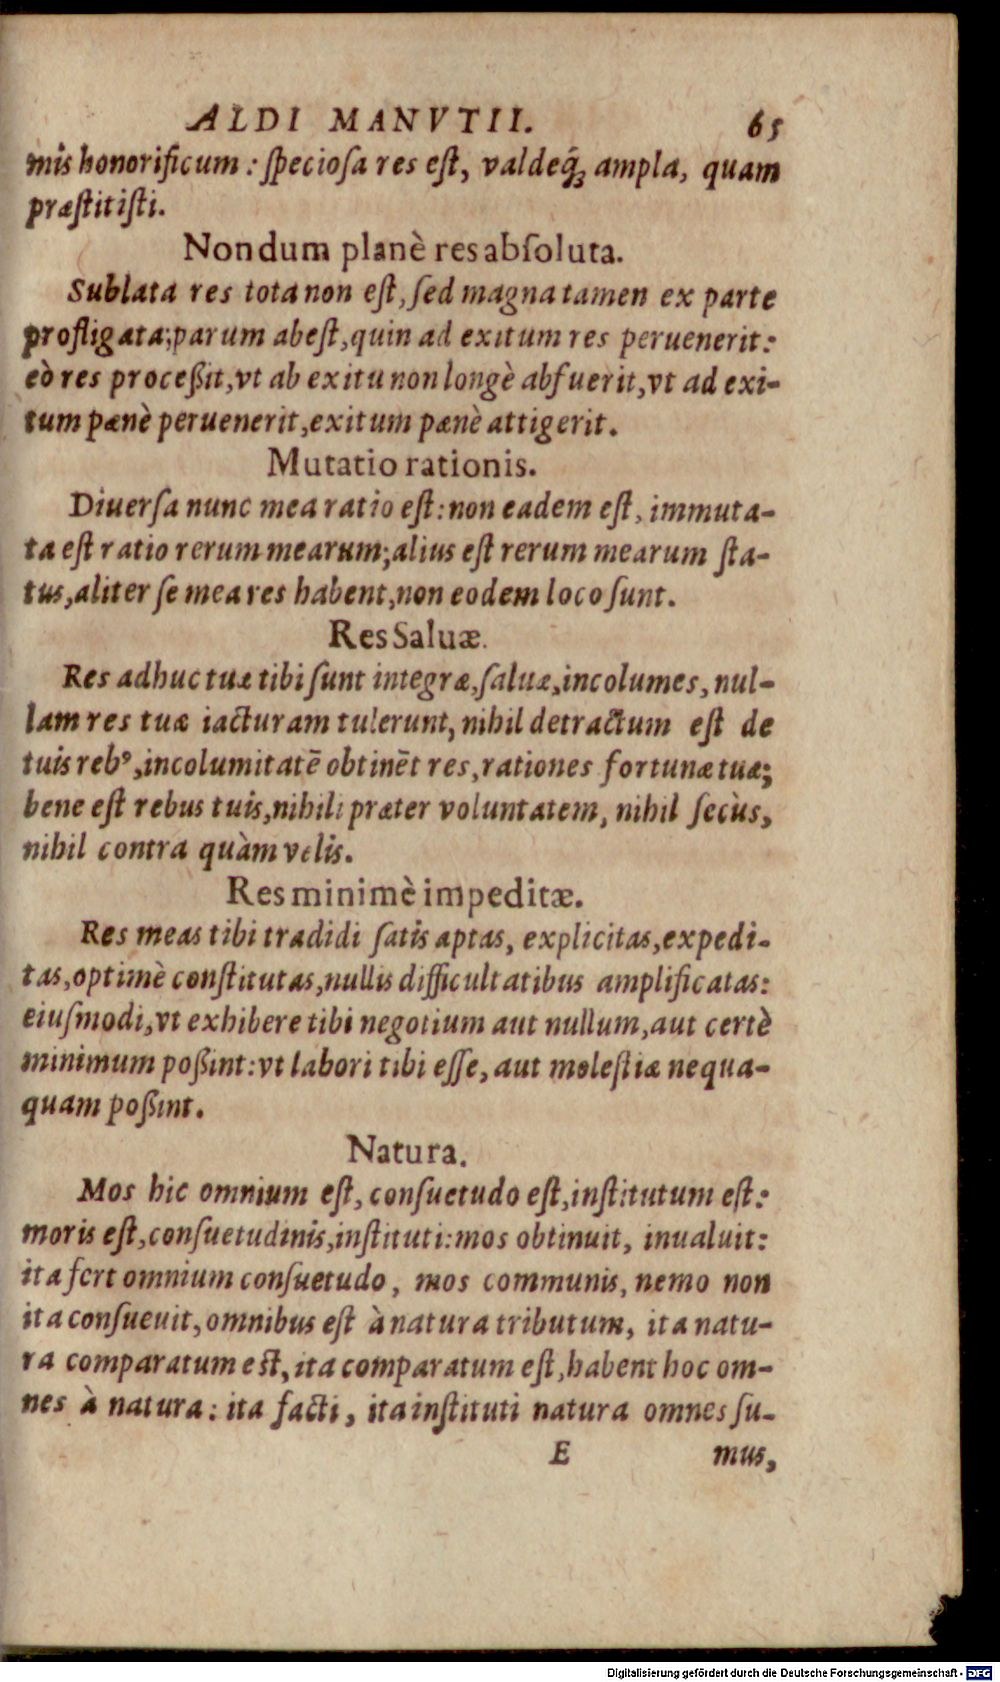 ALDI MANVTII. 65
mis honorificum : ſpecioſa res eſt, valdeq́ꝫ ampla, quam
præſtitiſti.
Nondum planè res abſoluta.
Sublata res tota non eſt, ſed magna tamen ex parte
profligata; parum abeſt, quin ad exitum res peruenerit:
eò res proceßit, vt ab exitu non longè abfuerit, vt ad exi-
tum pænè peruenerit, exitum pænè attigerit.
Mutatio rationis.
Diuerſa nunc mea ratio eſt: non eadem eſt, immuta-
ta eſt ratio rerum mearum; alius eſt rerum mearum ſta-
tus, aliter ſe mea res habent, non eodem loco ſunt.
Res Saluæ.
Res adhuc tuæ tibi ſunt integræ, ſaluæ, incolumes, nul-
lam res tuæ iacturam tulerunt, nihil detractum eſt de
tuis rebꝰ, incolumitatē obtinēt res, rationes fortunæ tuæ;
bene eſt rebus tuis, nihili præter voluntatem, nihil ſecùs,
nihil contra quàm velis.
Res minimè impeditæ.
Res meas tibi tradidi ſatis aptas, explicitas, expedi-
tas, optimè conſtitutas, nullis difficultatibus amplificatas:
eiuſmodi, vt exhibere tibi negotium aut nullum, aut certè
minimum poßint: vt labori tibi eſſe, aut moleſtiæ nequa-
quam poßint.
Natura.
Mos hic omnium eſt, conſuetudo eſt, inſtitutum eſt:
moris eſt, conſuetudinis, inſtituti: mos obtinuit, inualuit:
ita fert omnium conſuetudo, mos communis, nemo non
ita conſueuit, omnibus eſt à natura tributum, ita natu-
ra comparatum eſt, ita comparatum eſt, habent hoc om-
nes à natura: ita facti, ita inſtituti natura omnes ſu-
E mus,
Digitalisierung gefördert durch die Deutsche Forschungsgemeinschaft - DFG